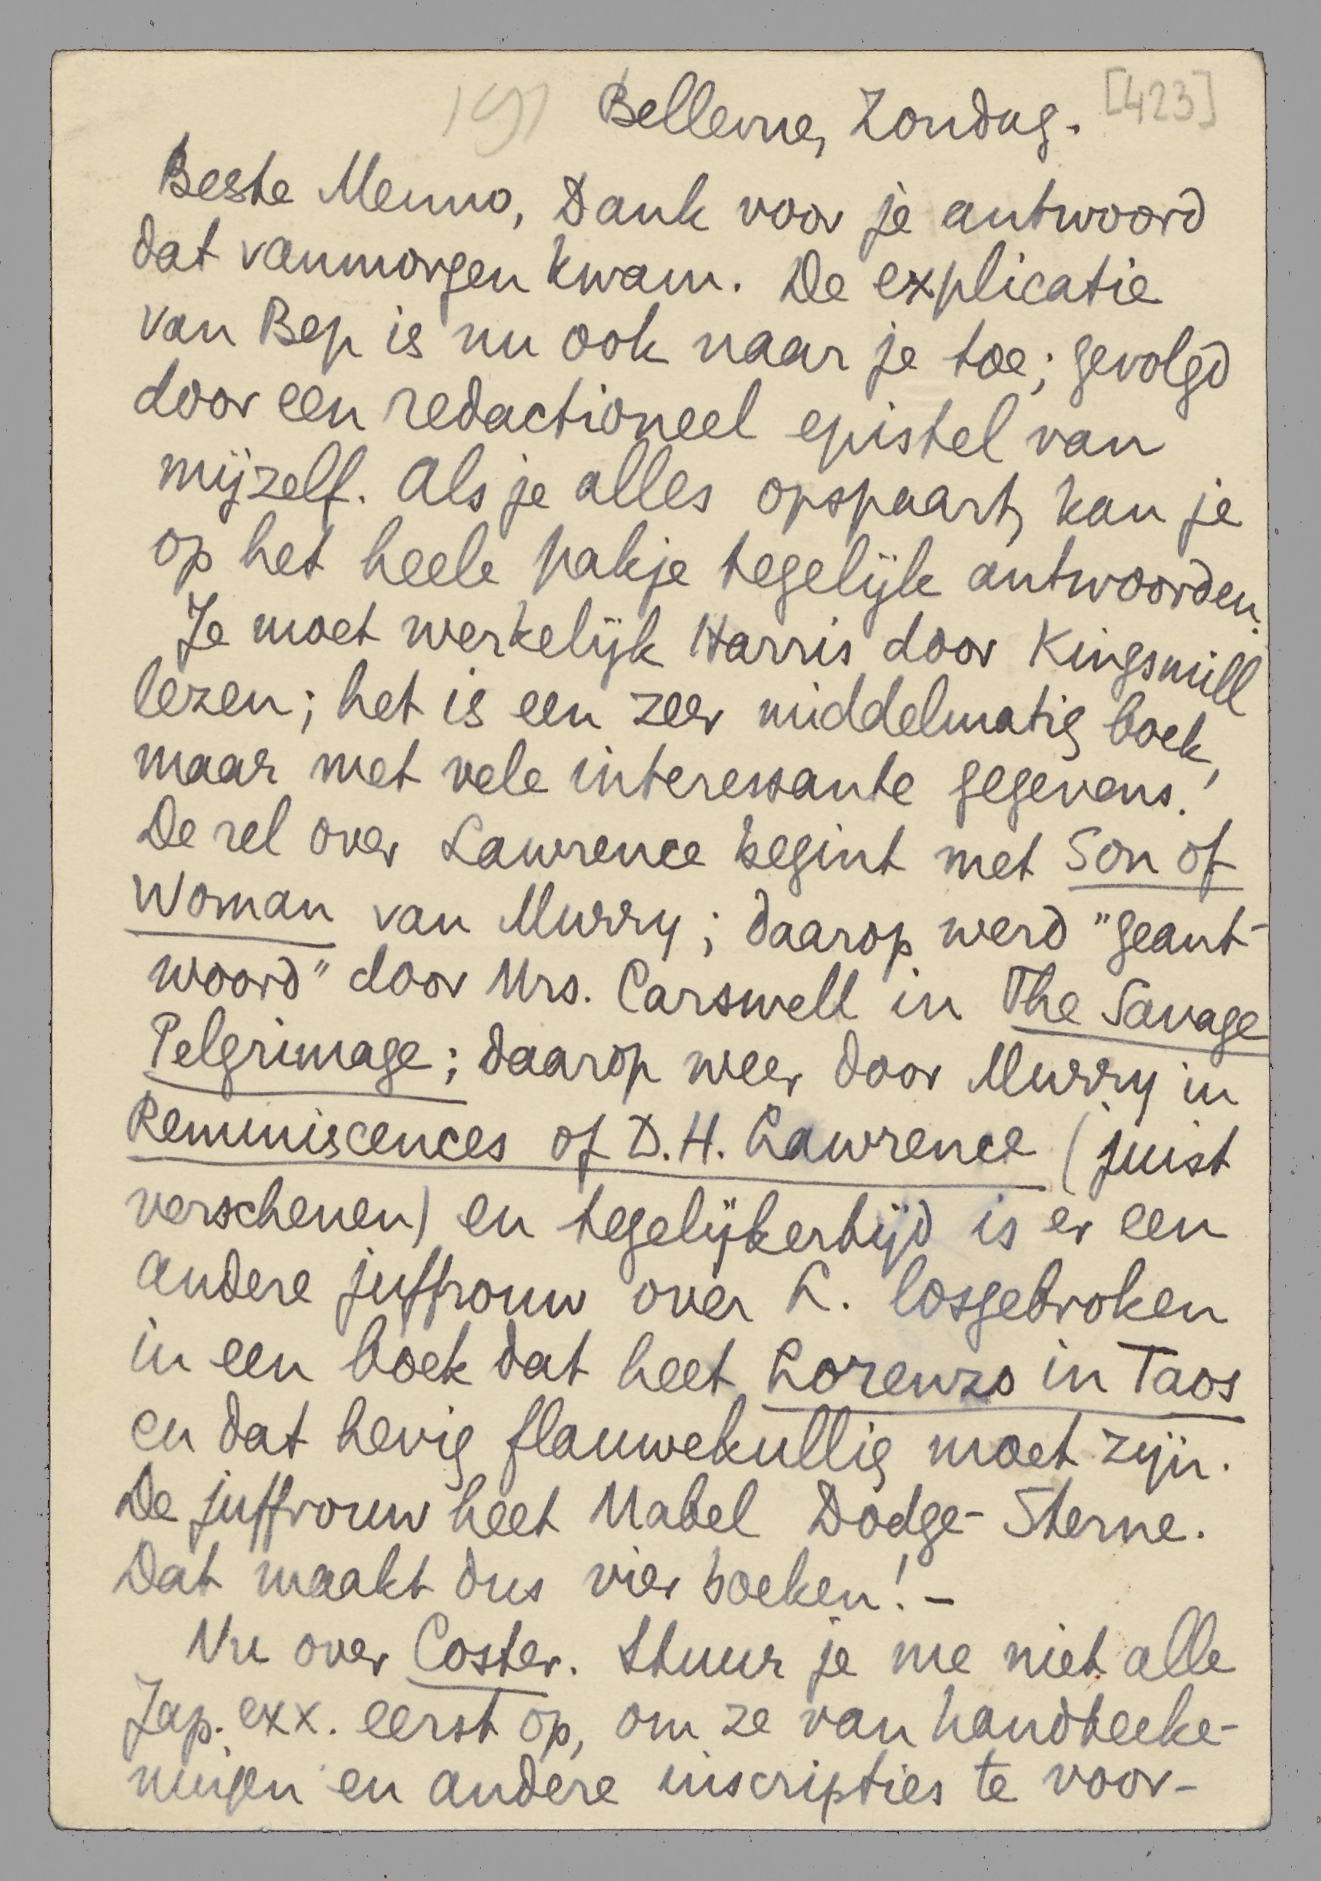 191 Bellevue, Zondag. [423]
Beste Menno, Dank voor je antwoord
dat vanmorgen kwam. De explicatie
van Bep is nu ook naar je toe; gevolgd
door een redactioneel epistel van
mijzelf. Als je alles opspaart, kan je
op het heele pakje tegelijk antwoorden.
Je moet werkelijk Harris door Kingsmill
lezen; het is een zeer middelmatig boek,
maar met vele interessante gegevens.
De rel over Lawrence begint met Son of
Woman van Murry; daarop werd "geant-
woord" door Mrs. Carswell in The Savage
Pelgrimage; daarop weer door Murry in
Reminiscences of D.H. Lawrence (juist
verschenen) en tegelijkertijd is er een
andere juffrouw over L. losgebroken
in een boek dat heet Lorenzo in Taos
en dat hevig flauwekullig moet zijn.
De juffrouw heet Mabel Dodge-Sterne.
Dat maakt dus vier boeken! -
Nu over Coster. Stuur je me niet alle
Jap. exx. eerst op, om ze van handteeke-
ningen en andere inscripties te voor-